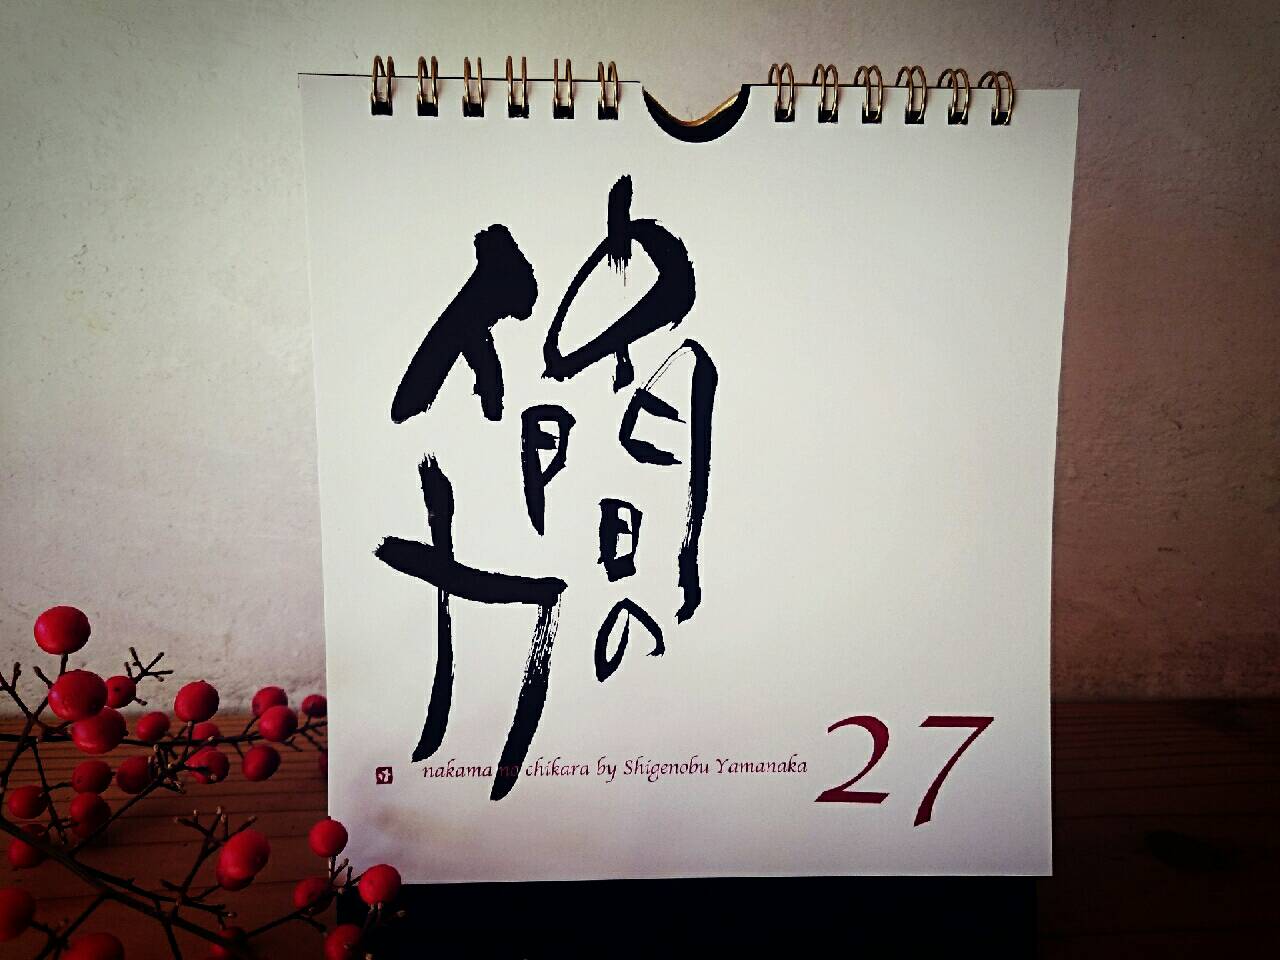 仲間の力
nakama no chikara by Shigenobu Yamanaka
27